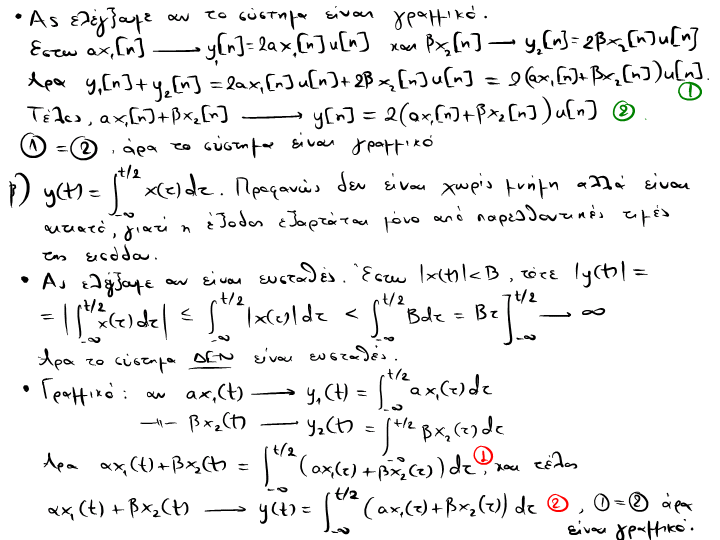 • Ας ελέγξουμε αν το σύστημα είναι γραμμικό.
Έστω ax₁[n] ⟶ y₁[n]=2ax₁[n]u[n] και βx₂[n] ⟶ y₂[n]=2βx₂[n]u[n]
Άρα y₁[n]+y₂[n]=2ax₁[n]u[n]+2βx₂[n]u[n] = 2(ax₁[n]+βx₂[n])u[n]. ①
Τέλος, ax₁[n]+βx₂[n] ⟶ y[n] = 2(ax₁[n]+βx₂[n])u[n] ②.
① = ②, άρα το σύστημα είναι γραμμικό
β) y(t) = ∫_{-∞}^{t/2} x(τ)dτ. Προφανώς δεν είναι χωρίς μνήμη αλλά είναι
αιτιατό, γιατί η έξοδος εξαρτάται μόνο από παρελθοντικές τιμές
της εισόδου.
• Ας ελέγξουμε αν είναι ευσταθές. Έστω |x(t)|<B, τότε |y(t)| =
= |∫_{-∞}^{t/2} x(τ)dτ| ≤ ∫_{-∞}^{t/2} |x(τ)|dτ < ∫_{-∞}^{t/2} Bdτ = Bτ]_{-∞}^{t/2} ⟶ ∞
Άρα το σύστημα ΔΕΝ είναι ευσταθές.
• Γραμμικό: αν ax₁(t) ⟶ y₁(t) = ∫_{-∞}^{t/2} ax₁(τ)dτ
-||- βx₂(t) ⟶ y₂(t) = ∫_{-∞}^{t/2} βx₂(τ)dτ
Άρα αx₁(t)+βx₂(t) = ∫_{-∞}^{t/2} (ax₁(τ)+βx₂(τ))dτ ①, και τέλος
αx₁(t)+βx₂(t) ⟶ y(t) = ∫_{-∞}^{t/2} (ax₁(τ)+βx₂(τ))dτ ②, ①=② άρα
είναι γραμμικό.